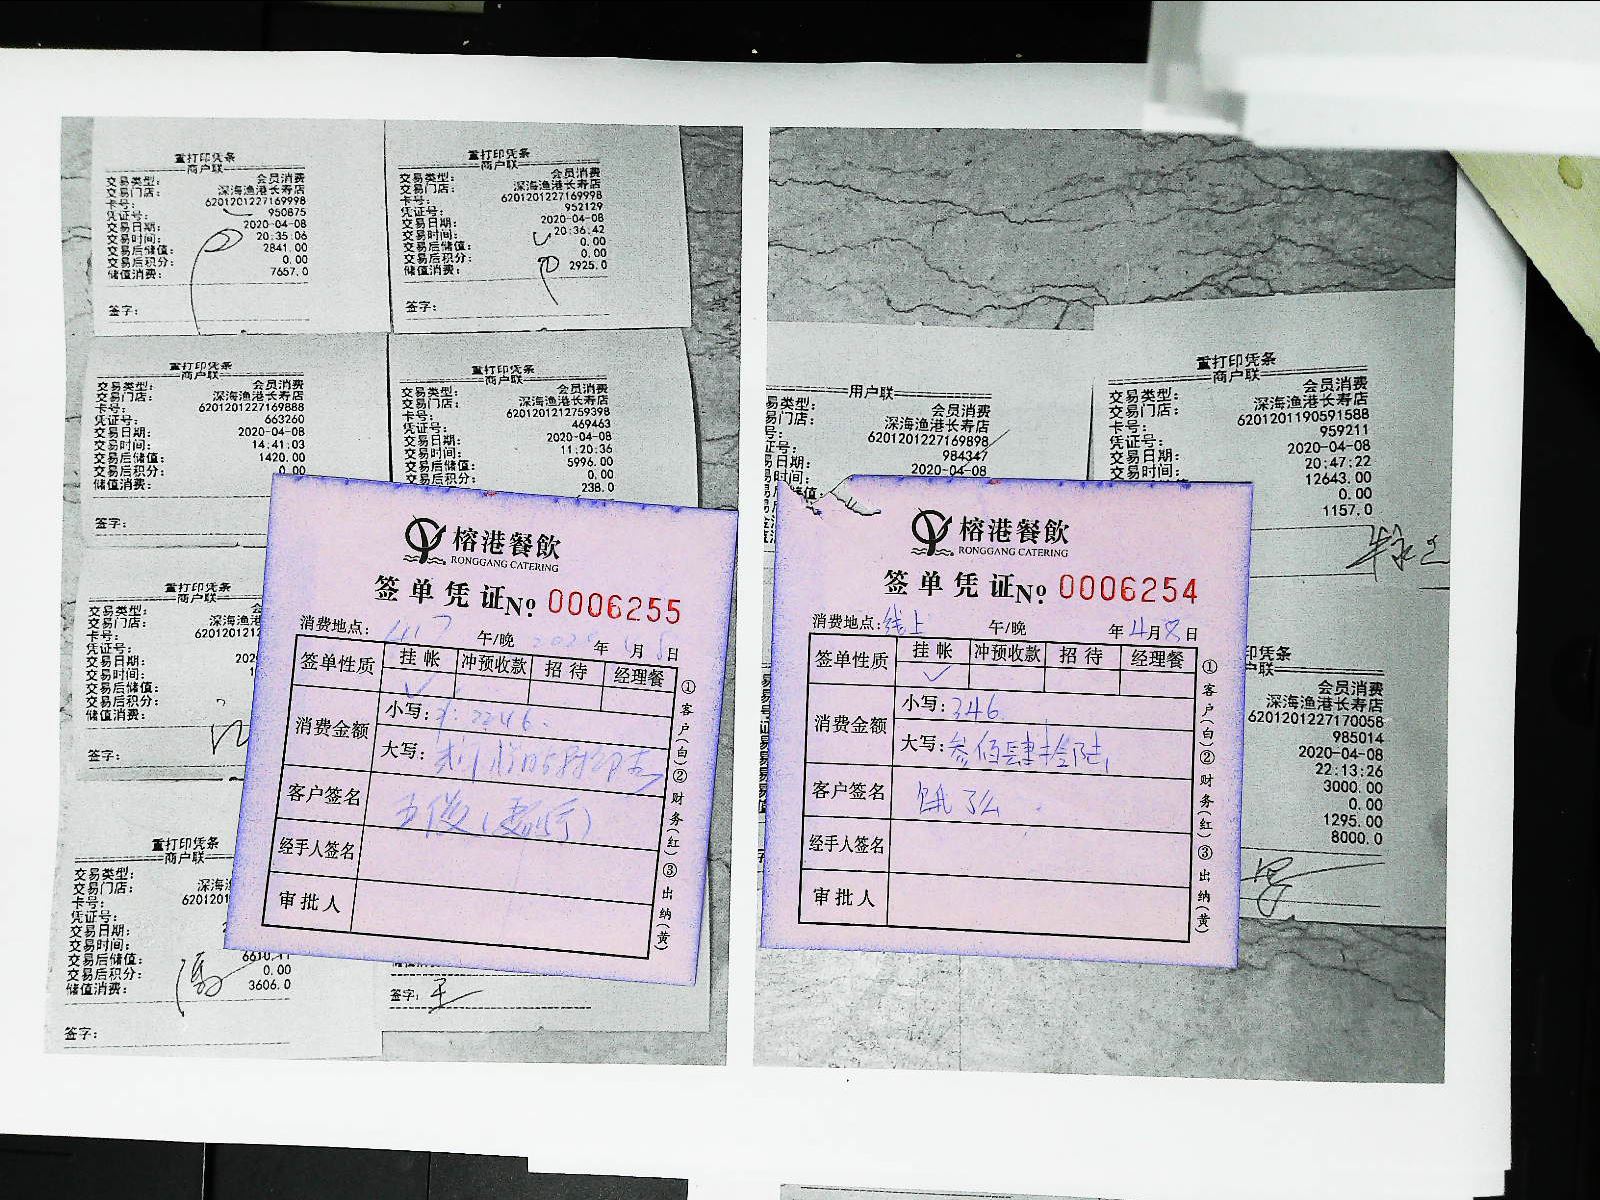 重打印凭条
商户联
交易类型: 会员消费
交易门店: 深海渔港长寿店
卡号: 6201201227169998
凭证号: 950875
交易日期: 2020-04-08
交易时间: 20:35:06
交易后储值: 2841.00
交易后积分: 0.00
储值消费: 7657.0
签字:
重打印凭条
商户联
交易类型: 会员消费
交易门店: 深海渔港长寿店
卡号: 6201201227169998
凭证号: 952129
交易日期: 2020-04-08
交易时间: 20:36:42
交易后储值: 0.00
交易后积分: 0.00
储值消费: 2925.0
签字:
重打印凭条
商户联
交易类型: 会员消费
交易门店: 深海渔港长寿店
卡号: 6201201227169888
凭证号: 663260
交易日期: 2020-04-08
交易时间: 14:41:03
交易后储值: 1420.00
交易后积分: 0.00
储值消费:
签字:
重打印凭条
商户联
交易类型: 会员消费
交易门店: 深海渔港长寿店
卡号: 6201201212759398
凭证号: 469463
交易日期: 2020-04-08
交易时间: 11:20:36
交易后储值: 5996.00
交易后积分: 0.00
储值消费: 238.0
重打印凭条
商户联
交易类型:
交易门店: 深海渔
卡号: 620120121
凭证号:
交易日期: 202
交易时间:
交易后储值:
交易后积分:
储值消费:
签字:
重打印凭条
商户联
交易类型:
交易门店: 深海
卡号: 620120
凭证号:
交易日期:
交易时间:
交易后储值:
交易后积分: 0.00
储值消费: 3606.0
签字:
签字: 王
榕港餐飲
RONGGANG CATERING
签单凭证 No 0006255
消费地点: 午/晚 2020年4月8日
签单性质 挂帐 冲预收款 招待 经理餐
消费金额 小写: 2246.
大写:
客户签名
经手人签名
审批人
①客户(白)②财务(红)③出纳(黄)
用户联
易类型: 会员消费
易门店: 深海渔港长寿店
号: 6201201227169898
证号: 984347
易日期: 2020-04-08
易时间:
重打印凭条
商户联
交易类型: 会员消费
交易门店: 深海渔港长寿店
卡号: 6201201190591588
凭证号: 959211
交易日期: 2020-04-08
交易时间: 20:47:22
12643.00
0.00
1157.0
印凭条
户联
会员消费
深海渔港长寿店
6201201227170058
985014
2020-04-08
22:13:26
3000.00
0.00
1295.00
8000.0
榕港餐飲
RONGGANG CATERING
签单凭证 No 0006254
消费地点: 线上 午/晚 年4月8日
签单性质 挂帐 冲预收款 招待 经理餐
消费金额 小写: 346.
大写: 叁佰肆拾陆
客户签名 饿了么
经手人签名
审批人
①客户(白)②财务(红)③出纳(黄)